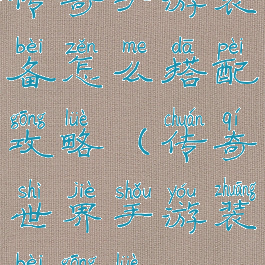 传奇世界手游装
bèi zěn me dā pèi
备怎么搭配
gōng lüè chuán qí
攻略（传奇
shì jiè shǒu yóu zhuāng
世界手游装
bèi gōng lüè